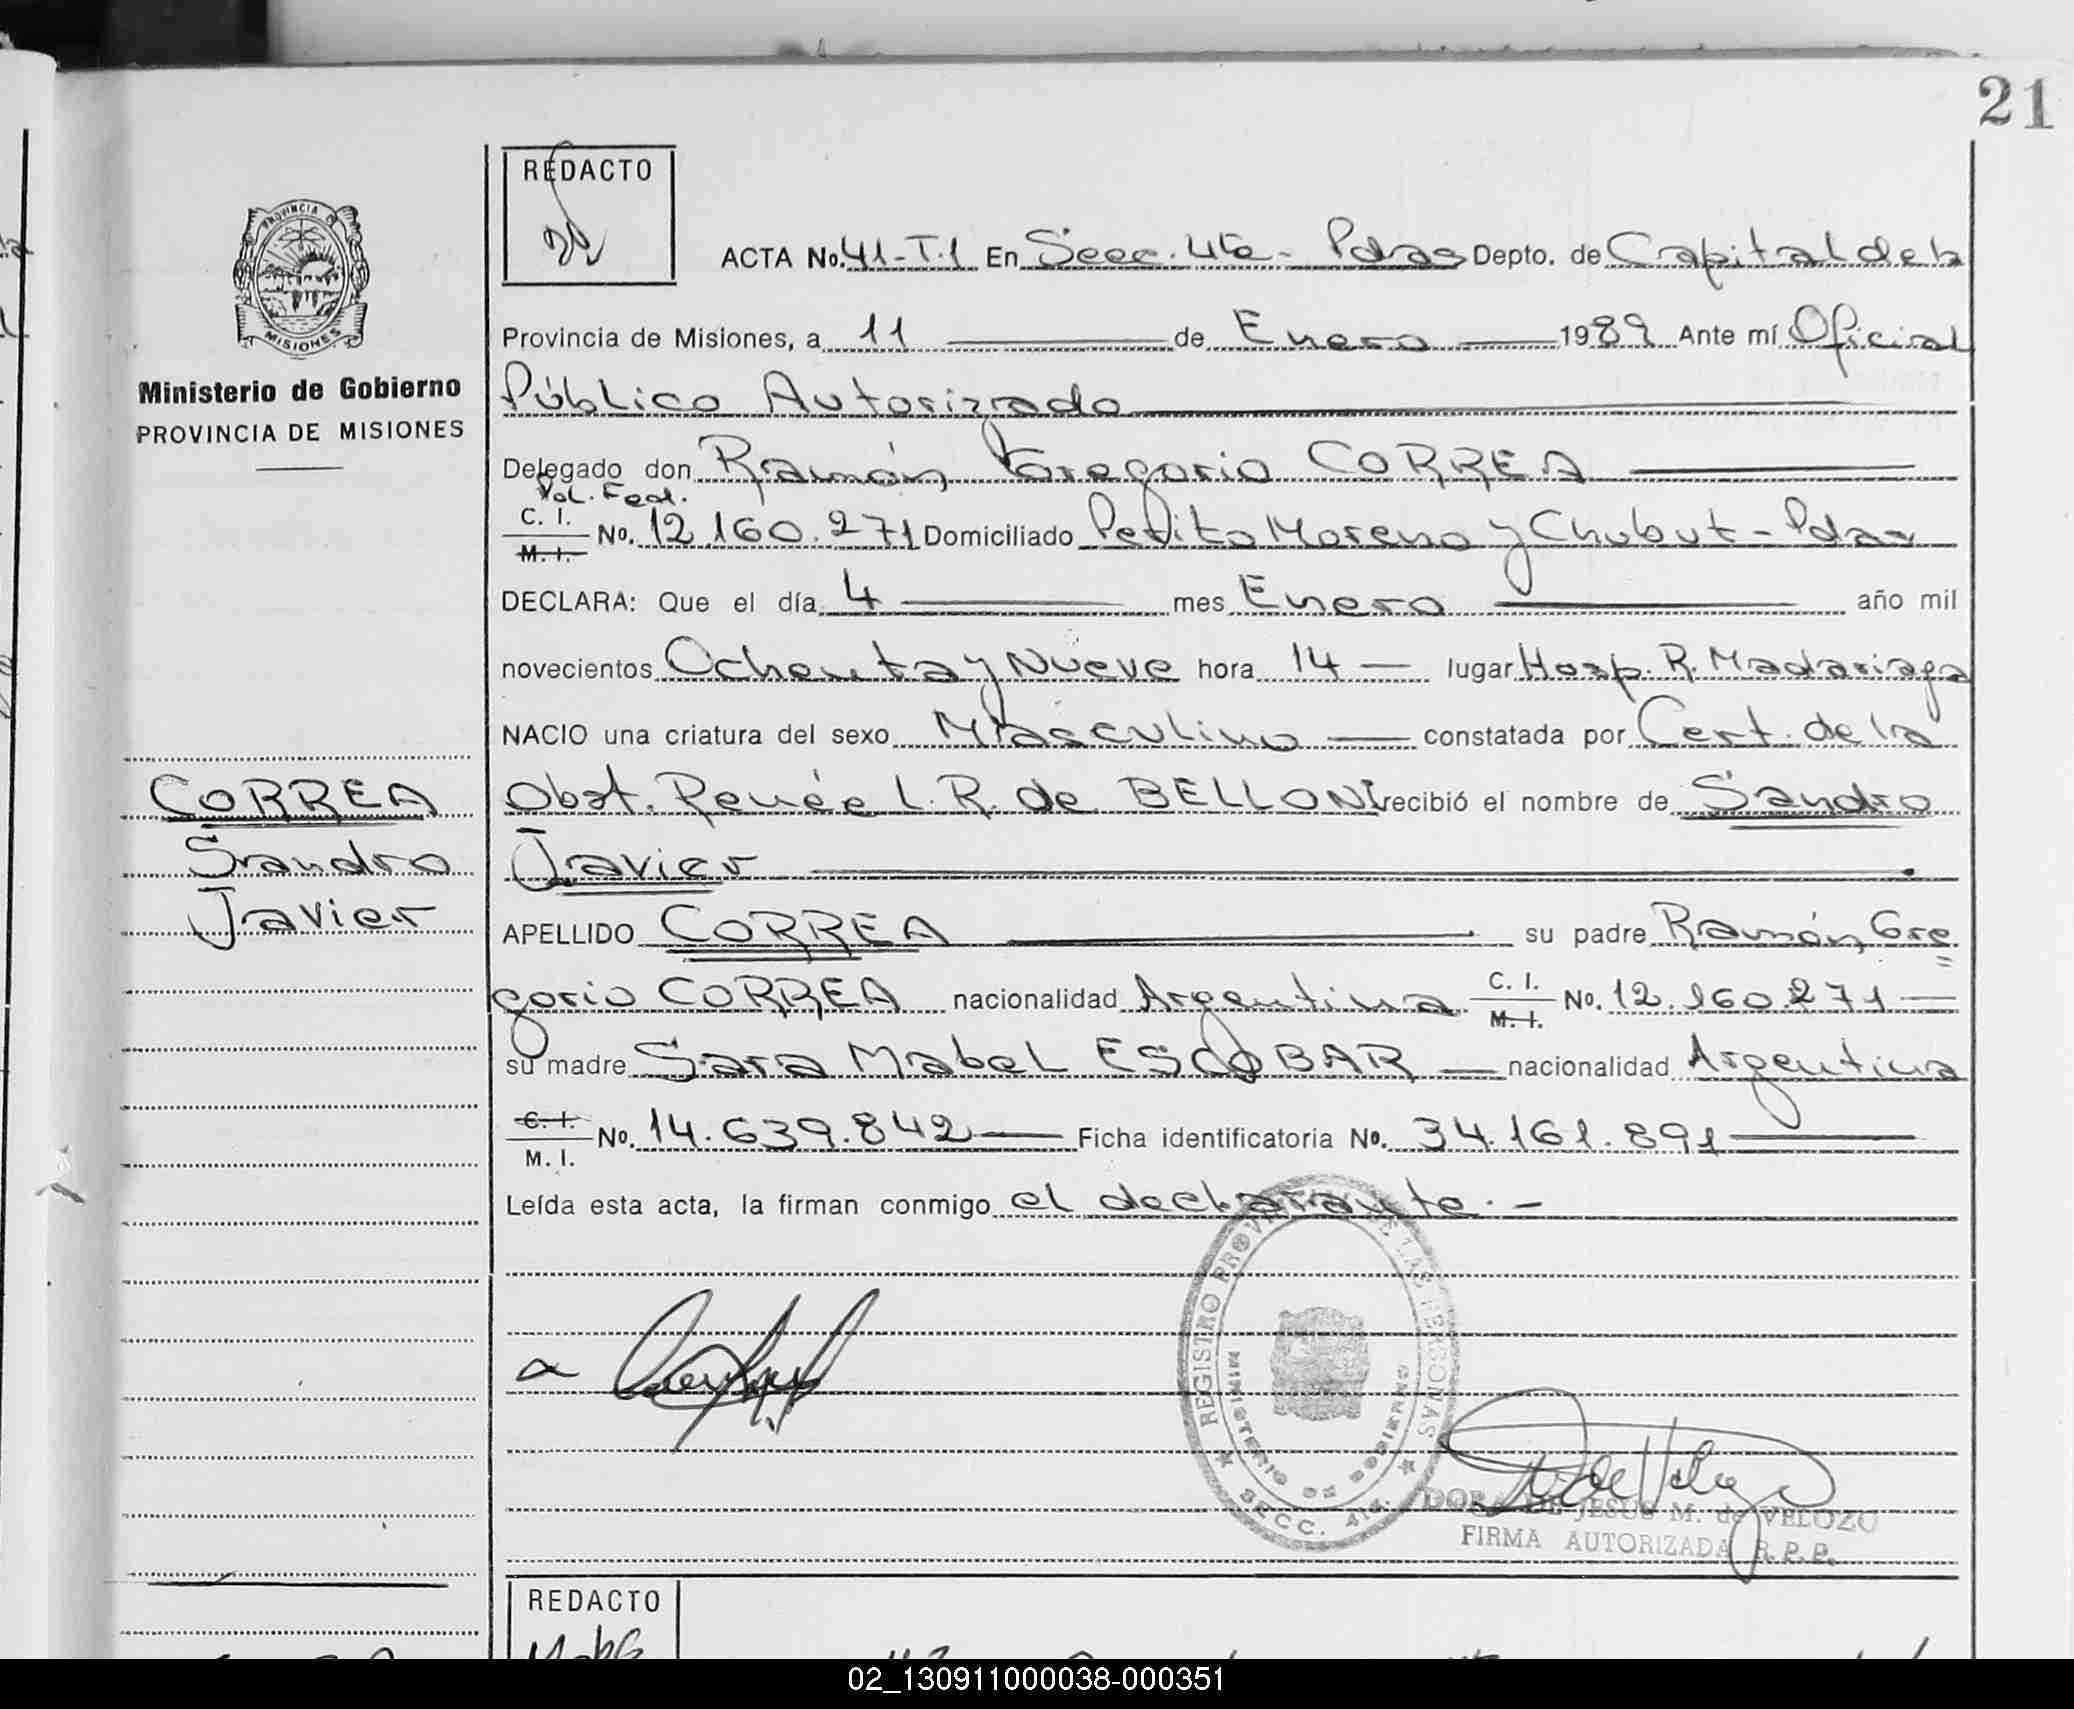 21
REDACTO
ACTA No. 41-T.1 En Secc. 4ta - Pdas Depto. de Capital de la
PROVINCIA DE
MISIONES
Provincia de Misiones, a 11 de Enero 1989 Ante mí Oficial
Ministerio de Gobierno
PROVINCIA DE MISIONES
Público Autorizado
Delegado don Ramón Gregorio CORREA
Pol. Fed.
C. I.
M. I. No. 12.160.271 Domiciliado Perito Moreno y Chubut - Pdas
DECLARA: Que el día 4 mes Enero año mil
novecientos Ochenta y Nueve hora 14 lugar Hosp. R. Madariaga
NACIO una criatura del sexo Masculino constatada por Cert. de la
Obst. Renée L. R. de BELLONI recibió el nombre de Sandro
Javier
CORREA
Sandro
Javier
APELLIDO CORREA su padre Ramón Gre
gorio CORREA nacionalidad Argentina C. I. M. I. No. 12.160.271
su madre Sara Mabel ESCOBAR nacionalidad Argentina
C. I.
M. I. No. 14.639.842 Ficha identificatoria No. 34.161.891
Leída esta acta, la firman conmigo el declarante. -
REGISTRO PROVINCIAL DE LAS PERSONAS
MINISTERIO DE GOBIERNO
SECC. 4ta.
DORA DE JESUS M. de VELOZO
FIRMA AUTORIZADA R. P. P.
REDACTO
02_130911000038-000351